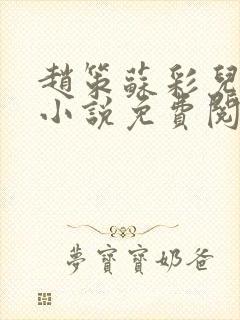 趙策蘇彩兒
小說免費閱
夢寶寶奶爸